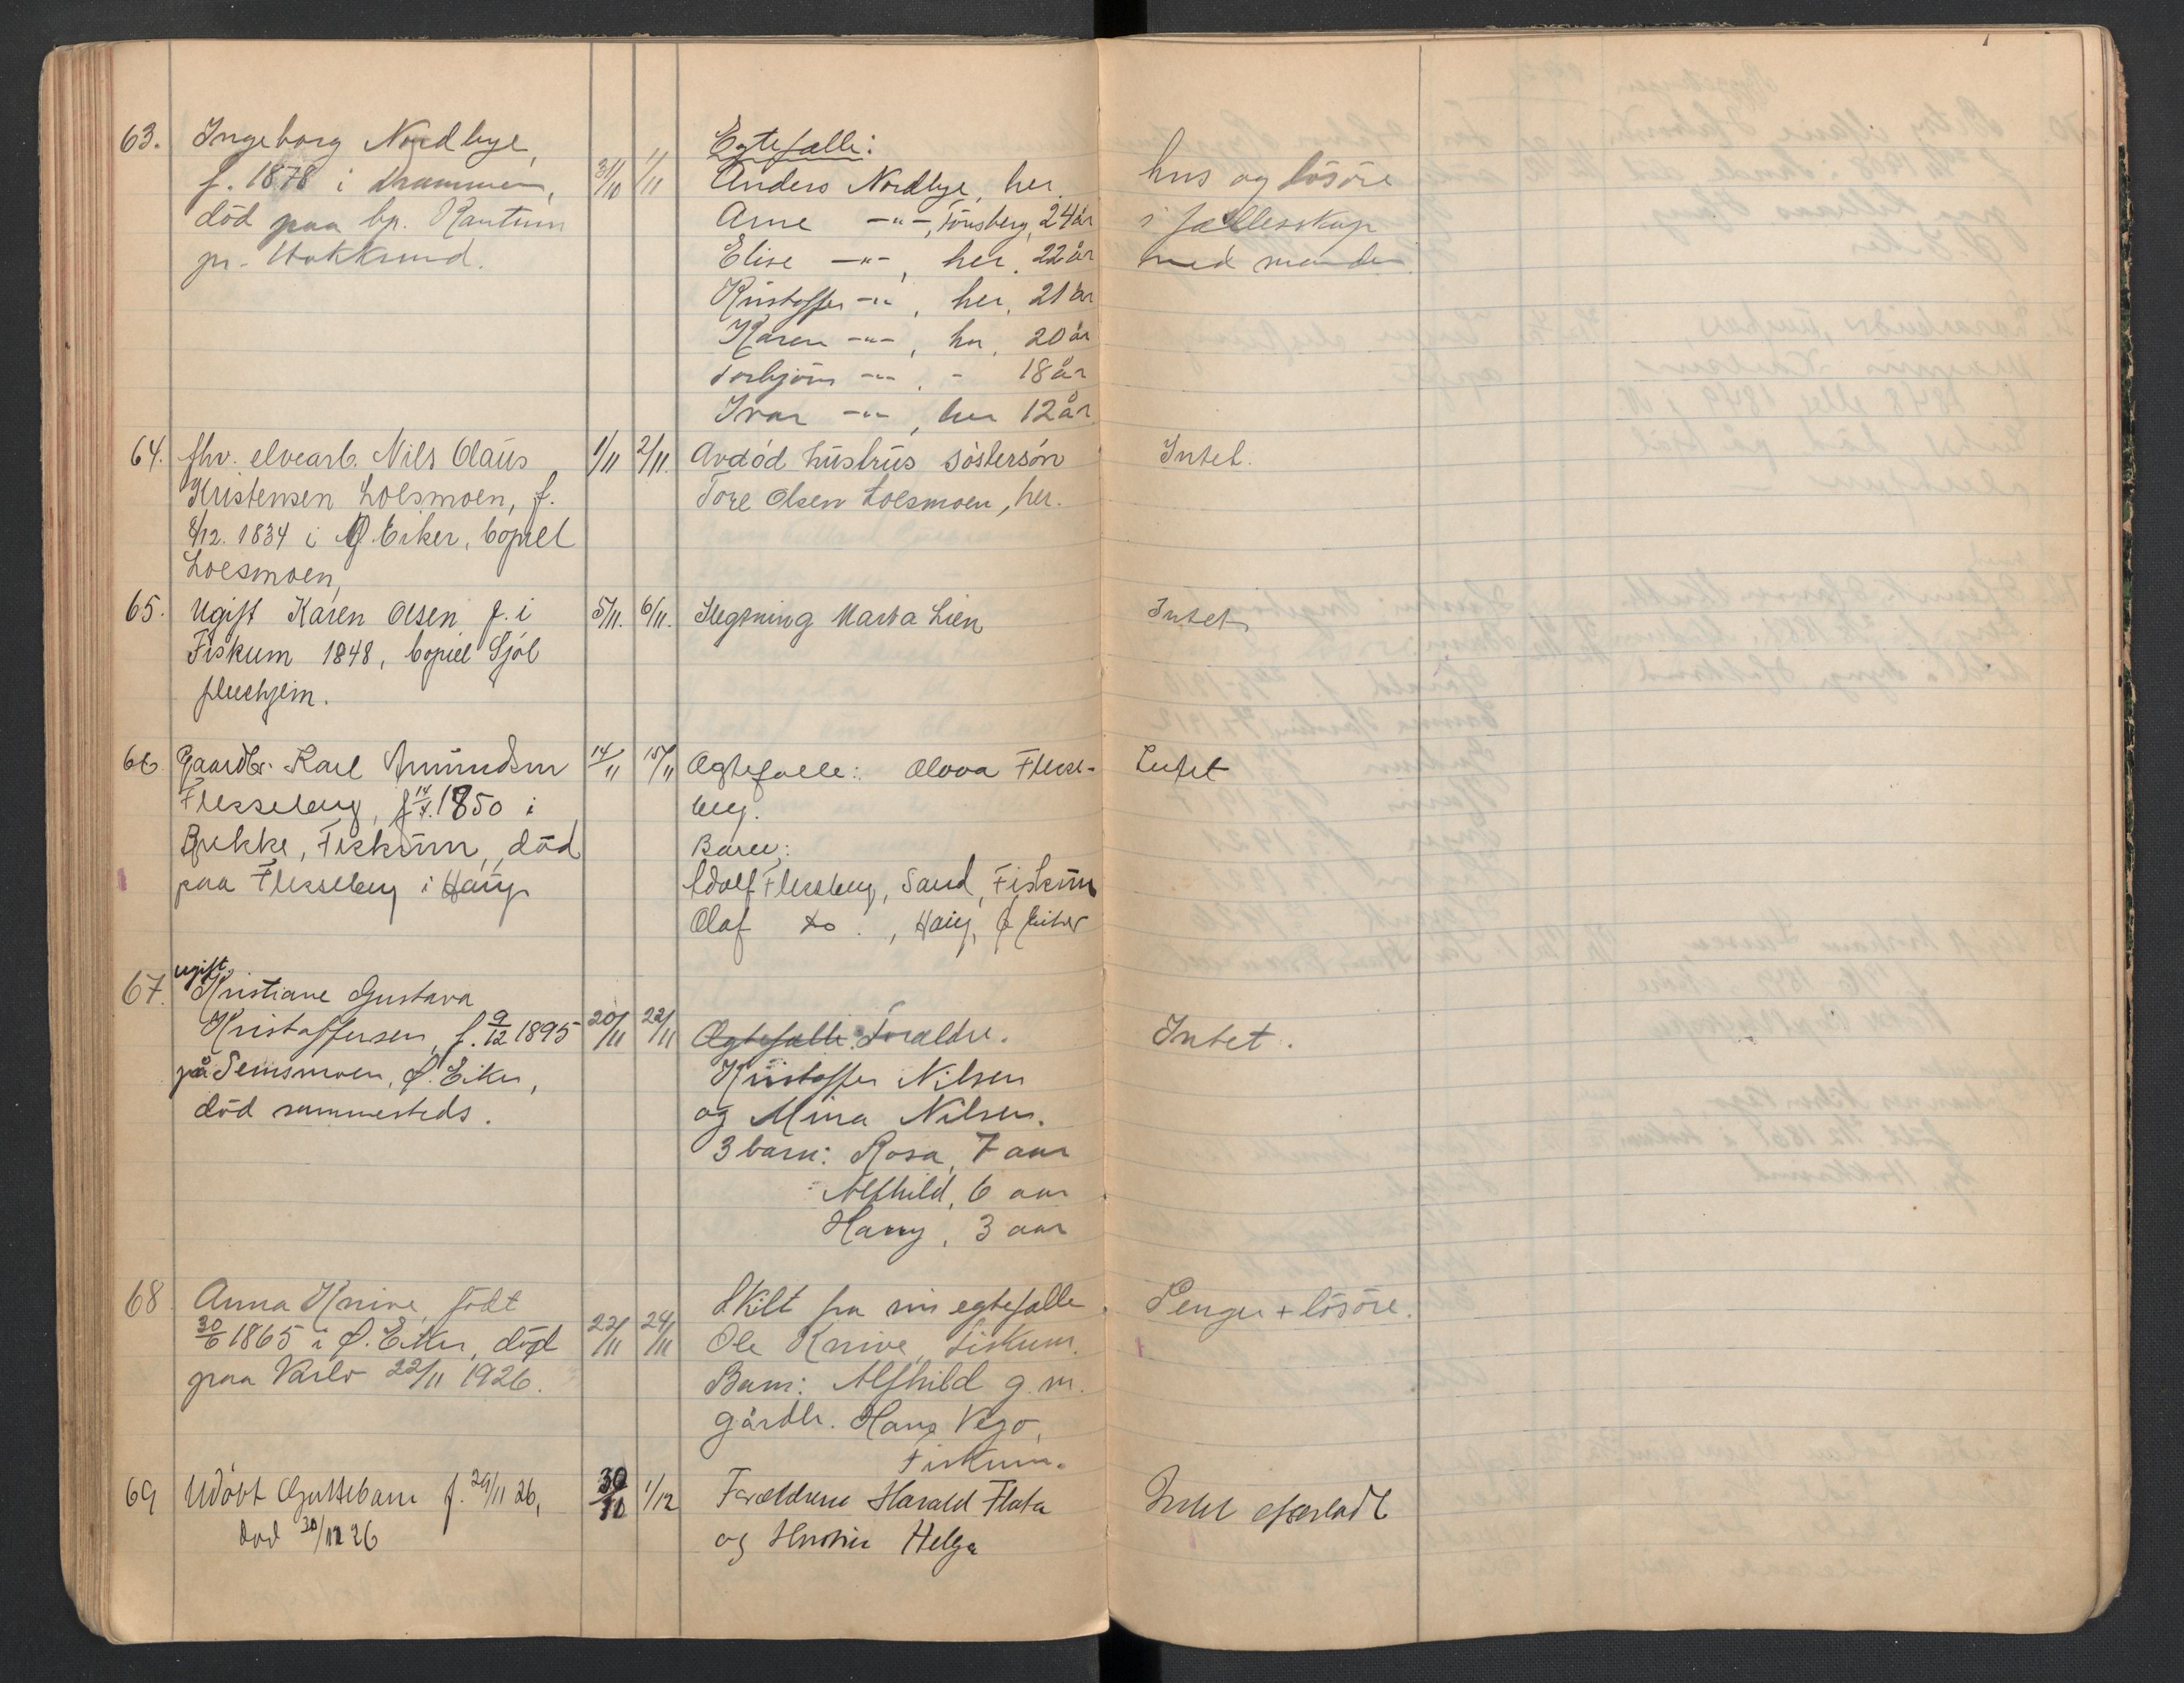 63. Ingeborg Nordbye, 31/10 1/11 Egtefælle: hus og lösöre
f. 1878 i Drammen, Anders Nordbye, her. i fællesskap
död paa bp. Rantum Arne -"-, Tönsberg, 24 år med manden.
pr. Hokksund. Elise -"-, her. 22 år
Kristoffer -"-, her, 21 år
Karen -"-, her, 20 år
Torbjörn -"-, - 18 år
Ivar -"-, her 12 år
64. fhv. elvearb. Nils Olaus 1/11 2/11. Avdöd hustrus söstersön Intet.
Kristensen Loesmoen, f. Tore Olsen Loesmoen, her.
8/12. 1834 i Ø. Eiker, bopæl
Loesmoen,
65. Ugift Karen Olsen f. i 5/11. 6/11. Slegtning Marta Lien Intet
Fiskum 1848, bopæl Sjöl
pleiehjem.
66 Gaardbr. Karl Amundsen 14/11 15/11 Ægtefælle: Olava Flesse- Intet
Flesseberg, f 14/4. 1850 i berg.
Bekke, Fiskum, död Barn:
paa Flesseberg i Haug Adolf Flesseberg, Sand, Fiskum
Olaf do., Haug, Ø Eiker
67. ugift.
Kristiane Gustava
Kristoffersen, f. 9/12 1895 20/11 22/11 Ægtefælle: Foræaldre. Intet.
på Semsmoen, Ø. Eiker, Kristoffer Nilsen
död sammesteds. og Mina Nilsen.
3 barn: Rosa, 7 aar
Alfhild, 6 aar
Harry, 3 aar
68. Anna Knive, födt 22/11 24/11 Skilt fra sin egtefælle Penger + lösöre.
30/6 1865 i Ø. Eiker, död Ole Knive, Fiskum.
paa Varlo 22/11 1926. Barn: Alfhild g. m.
gårdbr. Hans Vego,
Fiskum.
69 Udöbt Guttebarn f. 29/11 26, 30/10 1/12 Forældrene Harald Flata Intet efterladt
död 30/11 26 og Hustru Helga